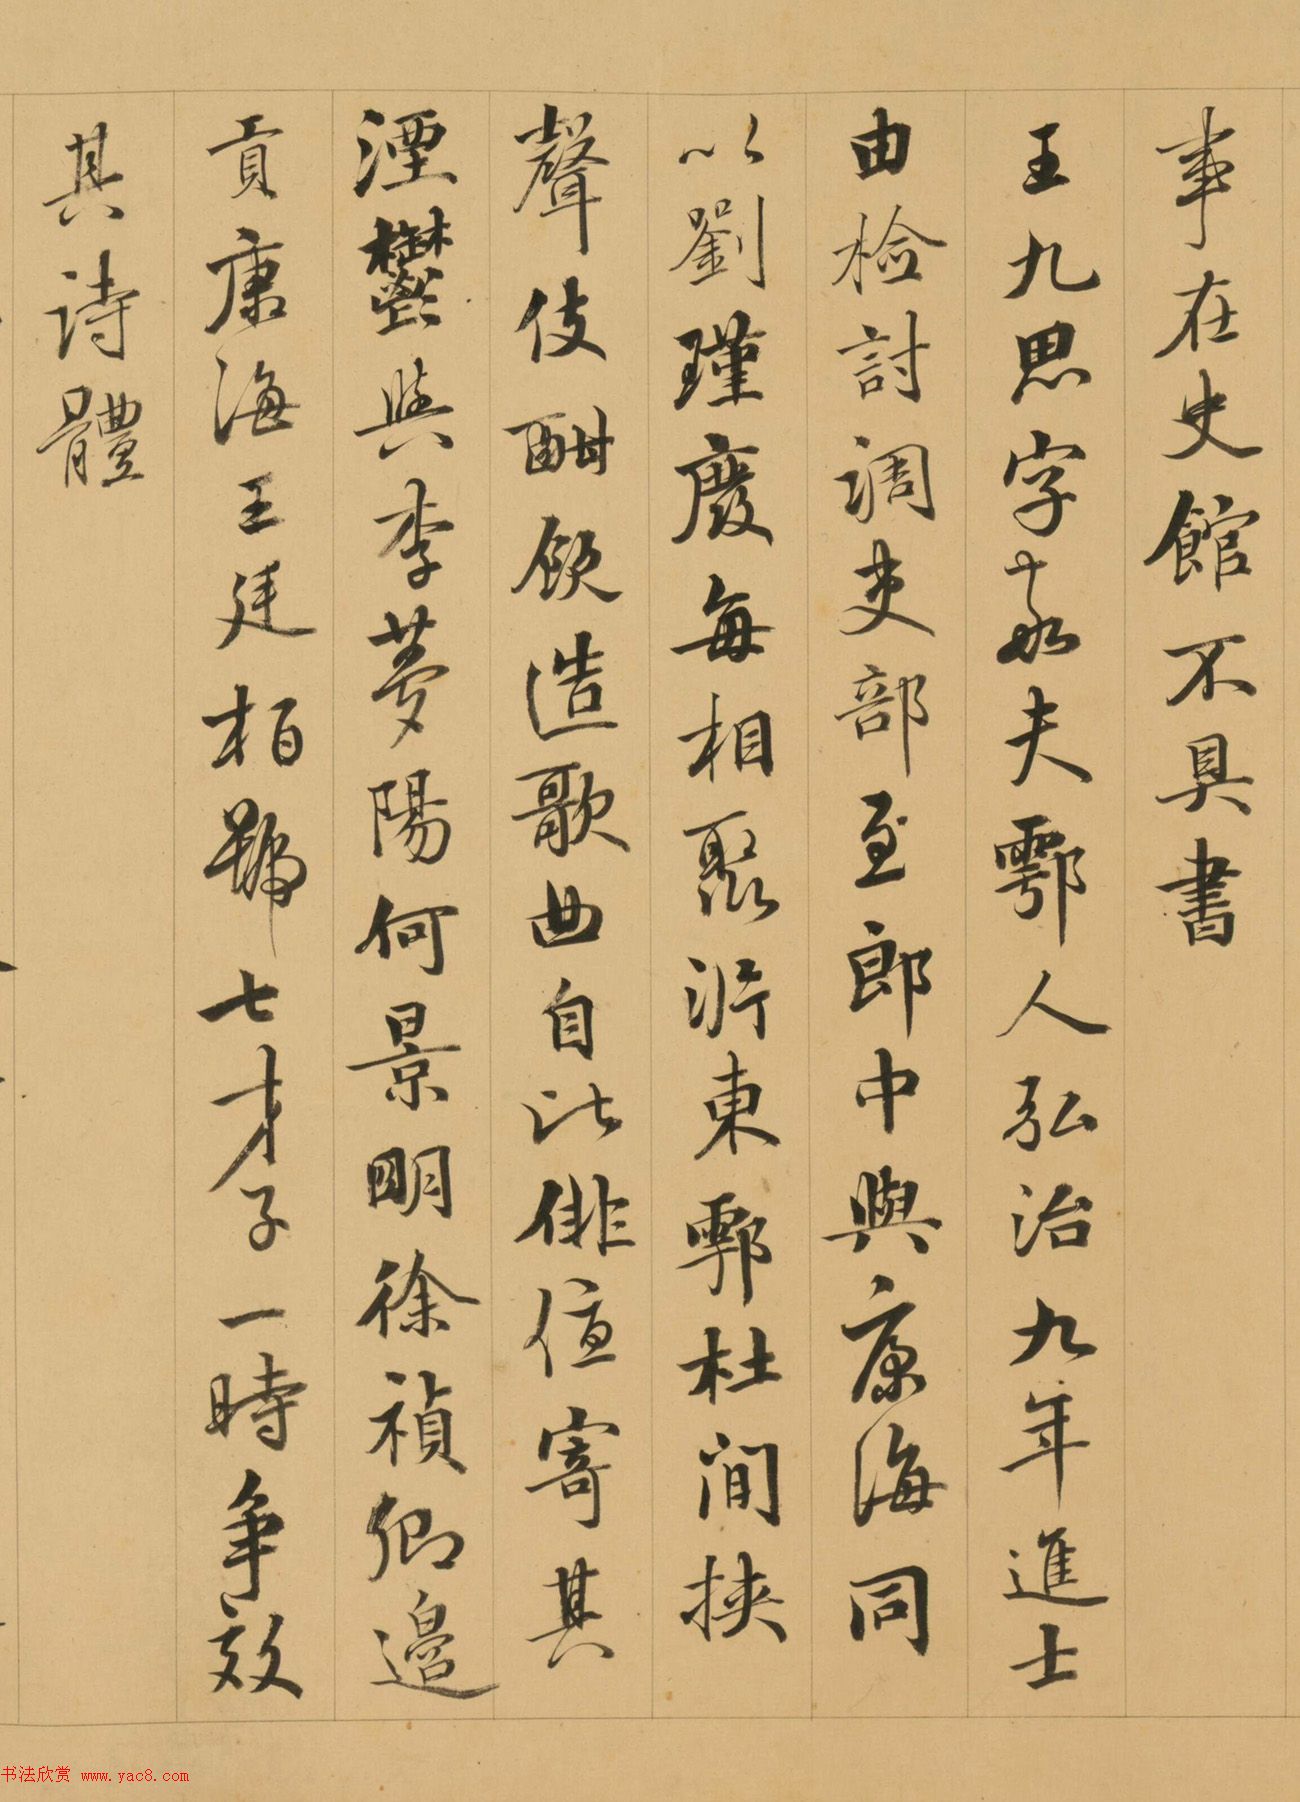 事在史館不具書
王九思字敬夫鄠人弘治九年進士
由檢討調吏部至郎中與康海同
以劉瑾廢每相聚沜東鄠杜間挾
聲伎酣飲造歌曲自比俳優寄其
湮鬱與李夢陽何景明徐禎卿邊
貢康海王廷相號七才子一時爭效
其詩體
书法欣赏 www.yac8.com